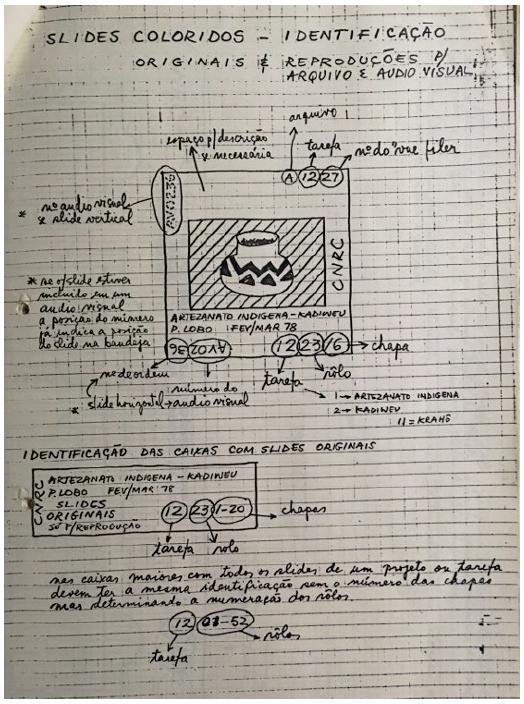 SLIDES COLORIDOS - IDENTIFICAÇÃO
ORIGINAIS & REPRODUÇÕES P/
ARQUIVO E AUDIO VISUAL
arquivo
espaço p/ descrição
necessária
tarefa
nº do "vue filer
A 12 27
AV023
nº audio visual
* slide vertical
CNRC
* se o slide estiver
incluido em um
audio visual
a posição do número
já indica a posição
do slide na bandeja
ARTEZANATO INDIGENA-KADIWEU
P. LOBO FEV/MAR 78
36 AV02 12 23 16
chapa
nº de ordem
número do
audio visual
* slide horizontal
tarefa
rôlo
1 → ARTEZANATO INDIGENA
2 → KADIWEU
11 = KRAHO
IDENTIFICAÇÃO DAS CAIXAS COM SLIDES ORIGINAIS
CNRC
ARTEZANATO INDIGENA - KADIWEU
P. LOBO FEV/MAR 78
SLIDES
ORIGINAIS
SÓ P/REPRODUÇÃO
12 23 1-20
chapas
tarefa rolo
nas caixas maiores com todos os slides de um projeto ou tarefa
devem ter a mesma identificação sem o número das chapas
mas determinando a numeração dos rôlos.
12 03-52
rôlos
tarefa